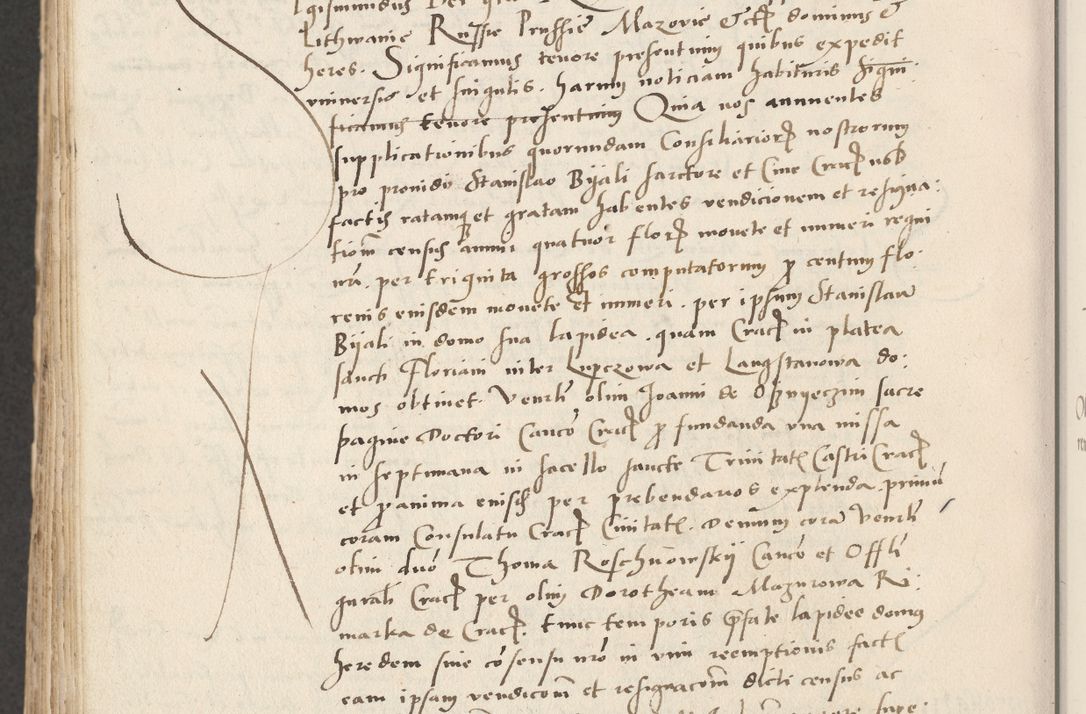 Lithwanie Russie Prussie Mazovie etc dominus et
heres. Significamus tenore presentium quibus expedit
universis et singulis. harum noticiam habituris Signi
ficamus tenore presentium Quia nos annuentes
supplicationibus quorundam Consiliarior nostrorum
pro provido Stanislao Bijali sartore et Cive Crac nob
factis ratamq et gratam habentes vendicionem et resigna:
tiom census annui quatuor flor monete et numeri regni
nri. per triginta grossos computatorum p centum flo
renis eiusdem monete et numeri. per ipsum Stanislaum
Bijali in domo sua lapidea. quam Crac in platea
sancti Floriani inter Kupczowa et Langstanowa do:
mos obtinet. Venrli olim Joanni de Oszwyeczim sacre
pagine Doctori Canco Crac p fundanda una missa
in septimana in sacello sancte Trinitatis Castri Crac
et p anima eiusd per prebendarios explenda. primu
coram Consulatu Crac Civitatis. Demum cora Venrli
olim dno Thoma Roschnowskij Canco et Offli
gnrali Crac per olim Dorotheam Mazurowa Ri:
marka de Crac. tunc temporis pfate lapidee domus
heredem sine cosensu nro in vim reemptionis fact
eam ipsam vendicom et resignacom dicti census ac